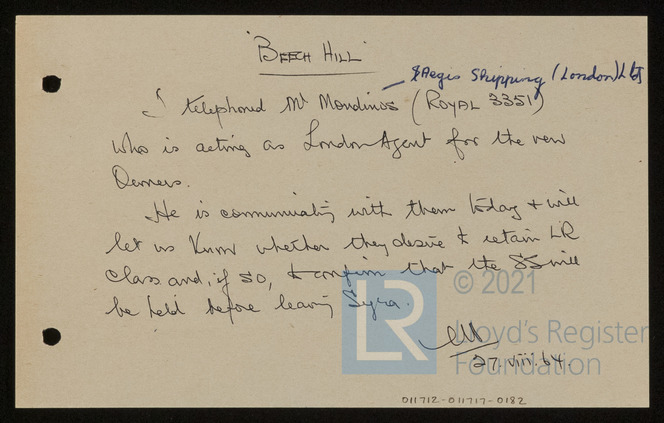 'BEECH HILL'
& Aegis Shipping (London) Ltd
I telephoned Mr Mondinos (ROYAL 3351)
who is acting as London Agent for the new
Owners.
He is communicating with them today & will
let us know whether they desire to retain LR
Class and, if so, to confirm that the SS will
be held before leaving Syra.
27.viii.64.
LR
© 2021
Lloyd's Register
Foundation
011712-011717-0182